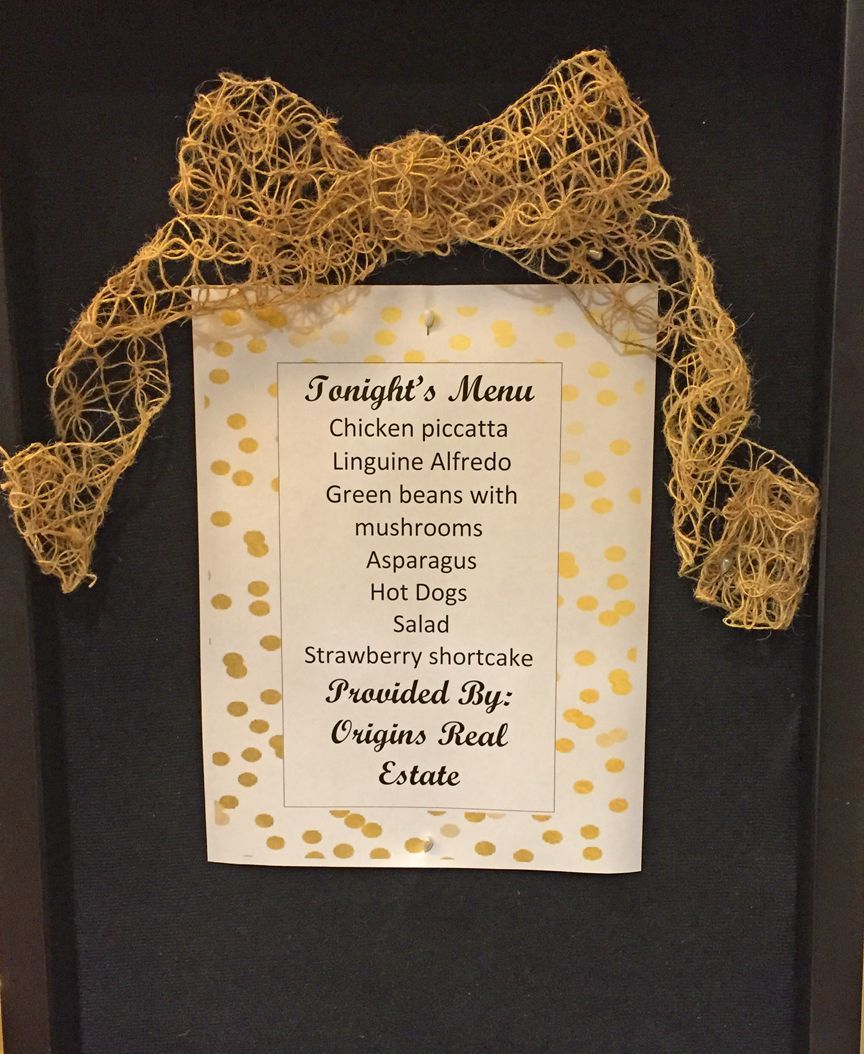 Tonight's Menu
Chicken piccatta
Linguine Alfredo
Green beans with
mushrooms
Asparagus
Hot Dogs
Salad
Strawberry shortcake
Provided By:
Origins Real
Estate